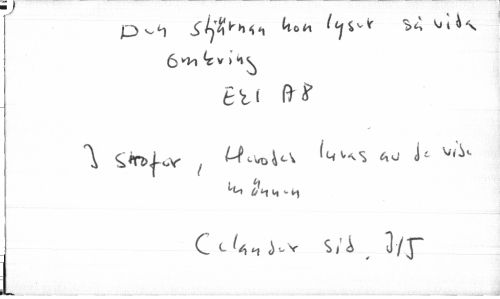 Den stjärnan hon lyser så vida
omkring
EEI A8
3 strofer, Herodes luras av de vise
männen
Celander sid. 315